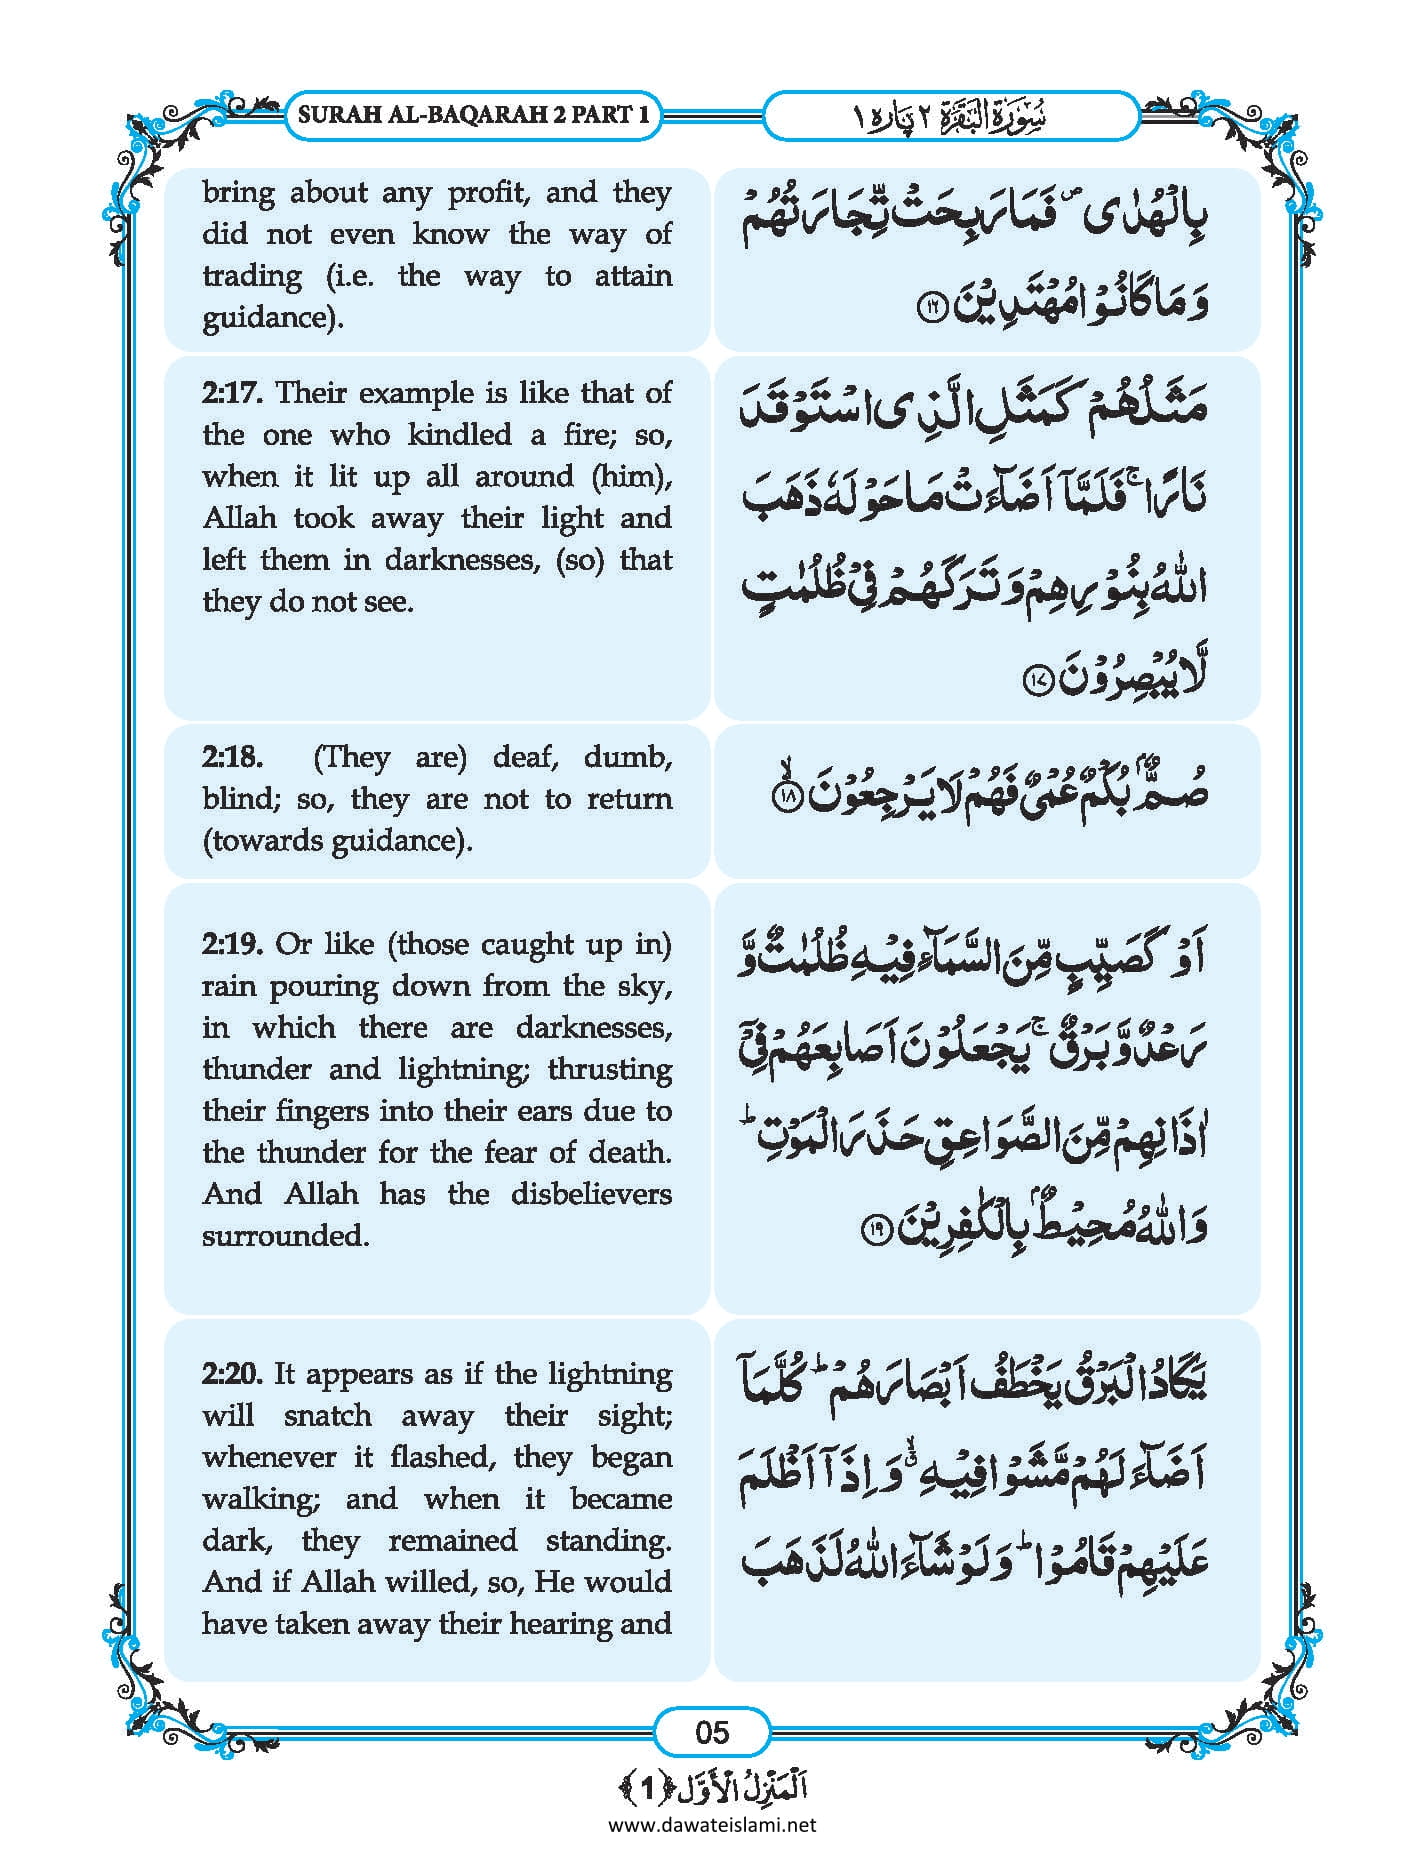 SURAH AL-BAQARAH 2 PART 1
سُوْرَةُ الْبَقَرَة ٢ پَارہ ١
bring about any profit, and they
did not even know the way of
trading (i.e. the way to attain
guidance).
بِالْهُدٰى ۪ فَمَا رَبِحَتْ تِّجَارَتُهُمْ
وَمَا كَانُوْا مُهْتَدِیْنَ ﴿۱۶﴾
2:17. Their example is like that of
the one who kindled a fire; so,
when it lit up all around (him),
Allah took away their light and
left them in darknesses, (so) that
they do not see.
مَثَلُهُمْ كَمَثَلِ الَّذِی اسْتَوْقَدَ
نَارًا ۚ فَلَمَّاۤ اَضَآءَتْ مَا حَوْلَهٗ ذَهَبَ
اللّٰهُ بِنُوْرِهِمْ وَتَرَكَهُمْ فِیْ ظُلُمٰتٍ
لَّا یُبْصِرُوْنَ ﴿۱۷﴾
2:18. (They are) deaf, dumb,
blind; so, they are not to return
(towards guidance).
صُمٌّۢ بُكْمٌ عُمْیٌ فَهُمْ لَا یَرْجِعُوْنَ ۙ﴿۱۸﴾
2:19. Or like (those caught up in)
rain pouring down from the sky,
in which there are darknesses,
thunder and lightning; thrusting
their fingers into their ears due to
the thunder for the fear of death.
And Allah has the disbelievers
surrounded.
اَوْ كَصَیِّبٍ مِّنَ السَّمَآءِ فِیْهِ ظُلُمٰتٌ وَّ
رَعْدٌ وَّبَرْقٌ ۚ یَجْعَلُوْنَ اَصَابِعَهُمْ فِیْۤ
اٰذَانِهِمْ مِّنَ الصَّوَاعِقِ حَذَرَ الْمَوْتِ ؕ
وَاللّٰهُ مُحِیْطٌۢ بِالْكٰفِرِیْنَ ﴿۱۹﴾
2:20. It appears as if the lightning
will snatch away their sight;
whenever it flashed, they began
walking; and when it became
dark, they remained standing.
And if Allah willed, so, He would
have taken away their hearing and
یَكَادُ الْبَرْقُ یَخْطَفُ اَبْصَارَهُمْ ؕ كُلَّمَاۤ
اَضَآءَ لَهُمْ مَّشَوْا فِیْهِ ۙ وَ اِذَاۤ اَظْلَمَ
عَلَیْهِمْ قَامُوْا ؕ وَلَوْ شَآءَ اللّٰهُ لَذَهَبَ
05
اَلْمَنْزِلُ الْاَوَّل ﴿1﴾
www.dawateislami.net